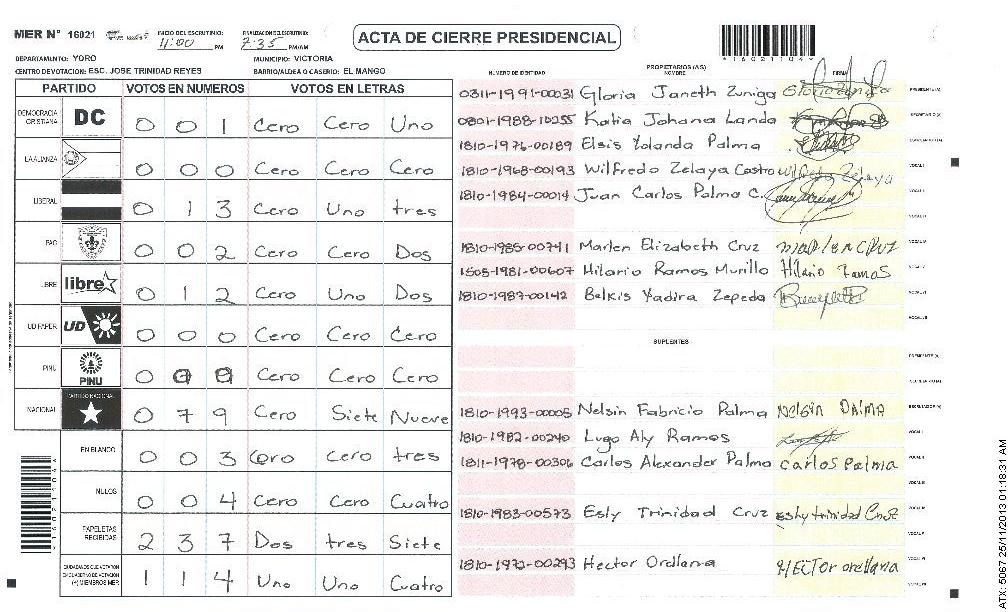 MER N° 16021 INICIO DEL ESCRUTINIO: 11:00 PM FINALIZACION DEL ESCRUTINIO: 7:35 PM/AM
ACTA DE CIERRE PRESIDENCIAL
*16021104*
DEPARTAMENTO: YORO MUNICIPIO: VICTORIA
CENTRO DE VOTACION: ESC. JOSE TRINIDAD REYES BARRIO/ALDEA O CASERIO: EL MANGO
PARTIDO VOTOS EN NUMEROS VOTOS EN LETRAS
DEMOCRACIA CRISTIANA DC 0 0 1 Cero Cero Uno
LA ALIANZA 0 0 0 Cero Cero Cero
LIBERAL 0 1 3 Cero Uno tres
PAC 0 0 2 Cero Cero Dos
LIBRE libre 0 1 2 Cero Uno Dos
UD FAPER UD 0 0 0 Cero Cero Cero
PINU PINU 0 0 0 Cero Cero Cero
NACIONAL PARTIDO NACIONAL 0 7 9 Cero Siete Nueve
EN BLANCO 0 0 3 Cero Cero tres
NULOS 0 0 4 Cero Cero Cuatro
PAPELETAS RECIBIDAS 2 3 7 Dos tres Siete
CIUDADANOS QUE VOTARON EN CUADERNO DE VOTACION (+) MIEMBROS MER 1 1 4 Uno Uno Cuatro
*16021104*
PROPIETARIOS (AS)
NUMERO DE IDENTIDAD NOMBRE FIRMA
0311-1991-00031 Gloria Janeth Zuniga PRESIDENTE (A)
0801-1988-10255 Katia Johana Landa SECRETARIO (A)
1810-1976-00189 Elsis Yolanda Palma ESCRUTADOR (A)
1810-1968-00193 Wilfredo Zelaya Castro Wilfredo Zelaya VOCAL I
1810-1984-00014 Juan Carlos Palma C. VOCAL II
VOCAL III
1810-1985-00741 Marlen Elizabeth Cruz marlen cruz VOCAL IV
1505-1981-00607 Hilario Ramos Murillo Hilario ramos VOCAL V
1810-1987-00142 Belkis Yadira Zepeda VOCAL VI
VOCAL VII
SUPLENTES
PRESIDENTE (A)
SECRETARIO (A)
1810-1993-00005 Nelsin Fabricio Palma Nelsin PAlMA ESCRUTADOR (A)
1810-1982-00240 Lugo Aly Ramos VOCAL I
1811-1978-00306 Carlos Alexander Palma carlos palma VOCAL II
VOCAL III
1810-1983-00573 Esly Trinidad Cruz esly trinidad Cruz VOCAL IV
VOCAL V
1810-1972-00293 Hector Orellana HECTor orellana VOCAL VI
VOCAL VII
ATX: 5067 25/11/2013 01:18:31 AM